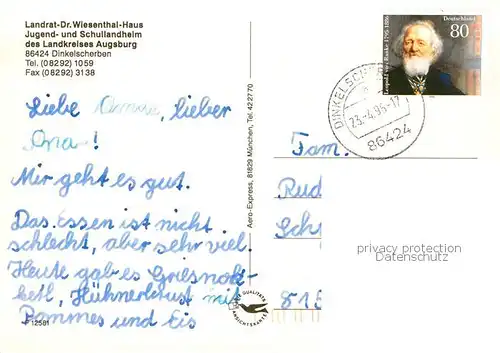 Landrat-Dr. Wiesenthal-Haus
Jugend- und Schullandheim
des Landkreises Augsburg
86424 Dinkelscherben
Tel. (08292) 1059
Fax (08292) 3138
Liebe lieber
!
Mir geht es gut.
Das Essen ist nicht
schlecht, aber sehr viel.
Heute gab es Griesnok-
kerl, Hühnerbrust mit
Pommes und Eis
P 12581
Aero-Express, 81829 München, Tel. 422770
QUALITÄTS
ANSICHTSKARTE
Leopold von Ranke 1795-1886
Deutschland
80
DINKELSCH
23.-4.95-17
86424
Fam.
Rud
Sch
privacy protection
Datenschutz
815